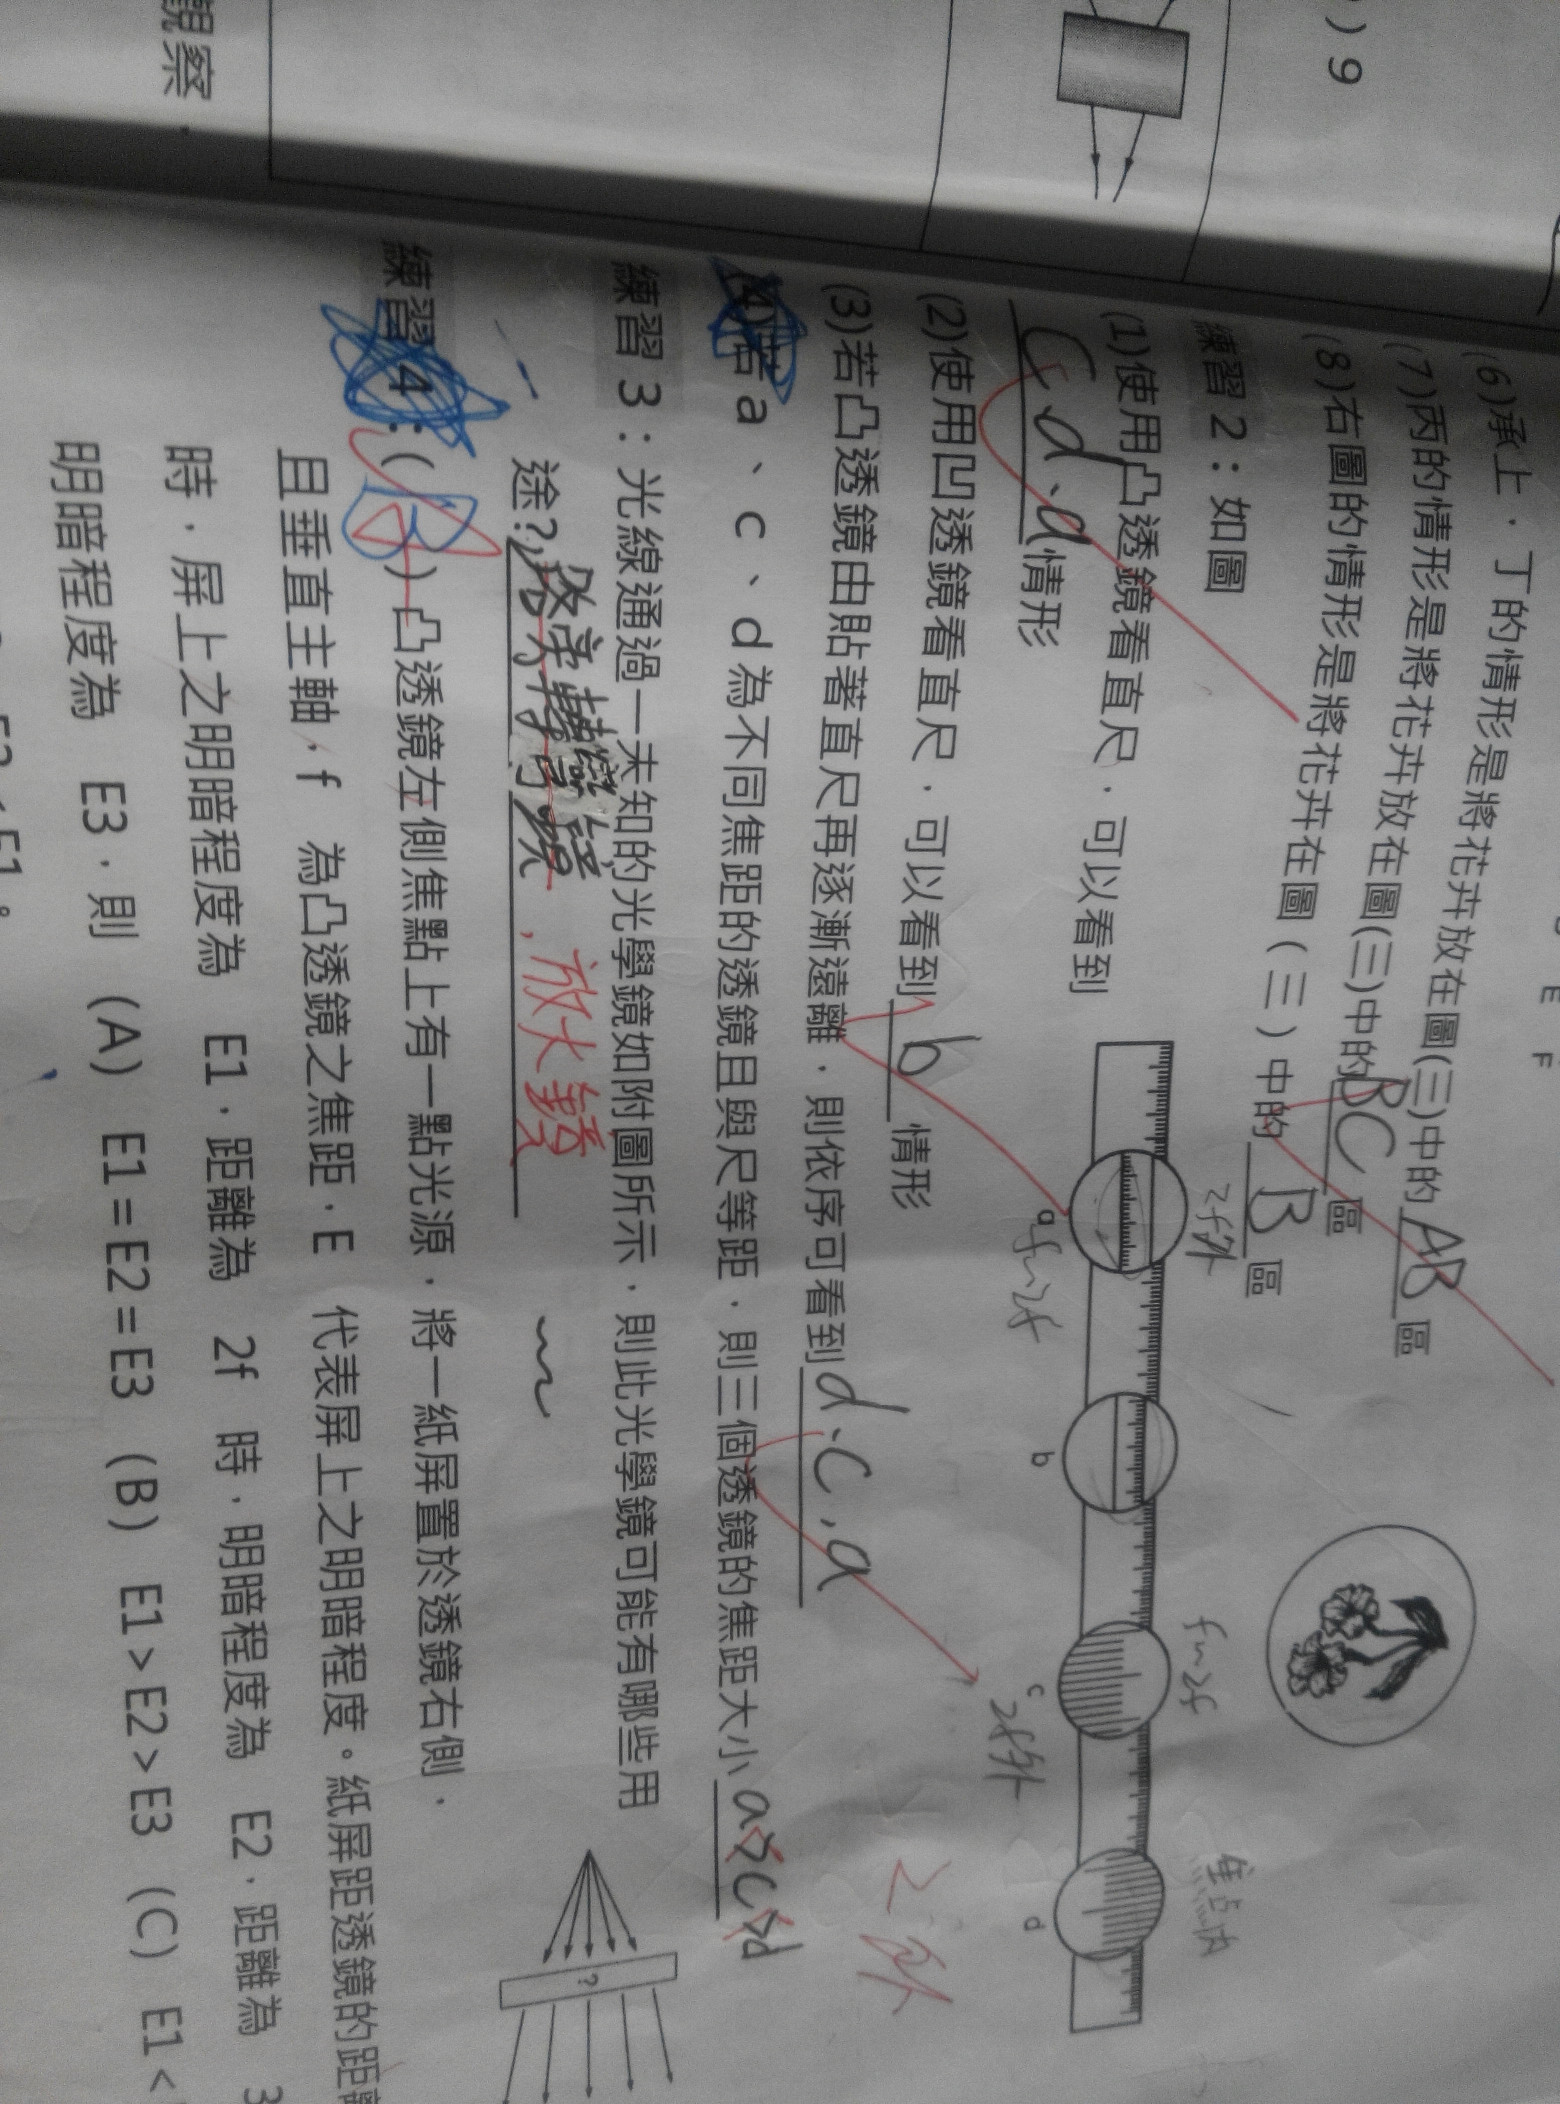 觀察．
) 9
E
F
(6)承上，丁的情形是將花卉放在圖(三)中的 AB 區
(7)丙的情形是將花卉放在圖(三)中的 BC 區
(8)右圖的情形是將花卉在圖(三)中的 B 區
練習2：如圖
(1)使用凸透鏡看直尺，可以看到
c d a 情形
2f外
f~2f
焦點內
a
b
c
d
f~2f
2f外
(2)使用凹透鏡看直尺，可以看到 b 情形
(3)若凸透鏡由貼著直尺再逐漸遠離，則依序可看到 d、c、a
(4)若 a、c、d 為不同焦距的透鏡且與尺等距，則三個透鏡的焦距大小 a>c>d
練習3：光線通過一未知的光學鏡如附圖所示，則此光學鏡可能有哪些用
途? ，放大鏡
?
練習4：( B )凸透鏡左側焦點上有一點光源，將一紙屏置於透鏡右側，
且垂直主軸，f 為凸透鏡之焦距，E 代表屏上之明暗程度。紙屏距透鏡的距離
時，屏上之明暗程度為 E1，距離為 2f 時，明暗程度為 E2，距離為 3
明暗程度為 E3，則 (A) E1=E2=E3 (B) E1>E2>E3 (C) E1<